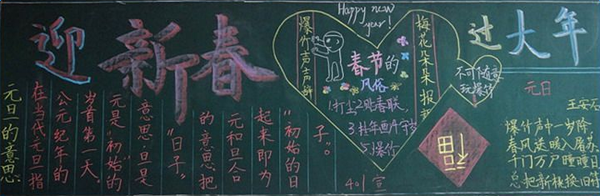 迎新春
过大年
Happy new
year!
爆竹声声辞
梅花朵朵报
春节的
风俗
1扫尘2贴春联
3挂年画4守岁
5爆竹
不可随意
玩爆竹
福
元旦的意思
在当代元旦指
公元纪年的
岁首第一天。
元是“初始的
意思,旦是
“日子”
的意思,把
元和旦合
起来即为
“初始的日
子”。
401宣
元日
王安石
爆竹声中一岁除
春风送暖入屠苏
千门万户曈曈日
总把新桃换旧符